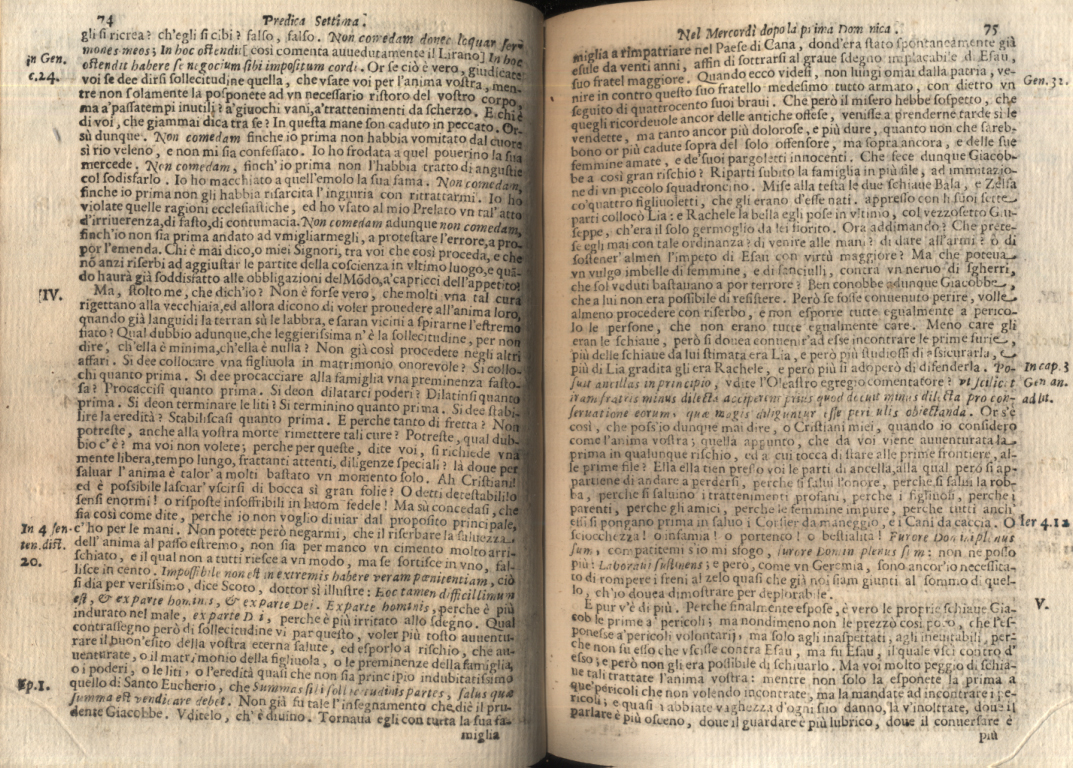 74 Predica Settima.
gli si ricrea? ch'egli si cibi? falso, falso. Non comedam donec loquar ser-
mones meos; In hoc ostendit [così comenta auuedutamente il Lirano] In hoc
ostendit habere se negocium sibi impositum cordi. Or se ciò è vero, guidicate
voi se dee dirsi sollecitudine quella, che vsate voi per l'anima vostra, men-
tre non solamente la posponete ad vn necessario ristoro del vostro corpo,
ma a'passatempi inutili? a'giuochi vani, a'trattenimenti da scherzo. E chi è
di voi, che giammai dica tra se? In questa mane son caduto in peccato. Or-
sù dunque. Non comedam finche io prima non habbia vomitato dal cuore
sì rio veleno, e non mi sia confessato. Io ho frodata a quel pouerino la sua
mercede. Non comedam, finch'io prima non l'habbia tratto di angustie
col sodisfarlo. Io ho macchiato a quell'emolo la sua fama. Non comedam,
finche io prima non gli habbia risarcita l'ingiuria con ritrattarmi. Io ho
violate quelle ragioni ecclesiastiche, ed ho vsato al mio Prelato vn tal'atto
d'irriuerenza, di fasto, di contumacia. Non comedam adunque non comedam,
finch'io non sia prima andato ad vmigliarmegli, a protestare l'errore, a pro-
por l'emenda. Chi è mai dico, o miei Signori, tra voi che così proceda, e che
nō anzi riserbi ad aggiustar le partite della coscienza in vltimo luogo, e quā-
do haurà già soddisfatto alle obbligazioni del Mōdo, a'capricci dell'appetito?
IV. Ma, stolto me, che dich'io? Non è forse vero, che molti vna tal cura
rigettano alla vecchiaia, ed allora dicono di voler prouedere all'anima loro,
quando già languidi la terran sù le labbra, e saran vicini a spirarne l'estremo
fiato? Qual dubbio adunque, che leggierissima n'è la sollecitudine, per non
dire, ch'ella è minima, ch'ella è nulla? Non già così procedete negli altri
affari. Si dee collocare vna figliuola in matrimonio onorevole? Si collo-
chi quanto prima. Si dee procacciare alla famiglia vna preminenza fasto-
sa? Procaccisi quanto prima. Si deon dilatarci poderi? Dilatinsi quanto
prima. Si deon terminare le liti? Si terminino quanto prima. Si dee stabi-
lire la eredità? Stabiliscasi quanto prima. E perche tanto di fretta? Non
potreste, anche alla vostra morte rimettere tali cure? Potreste, qual dub-
bio c'è? ma voi non volete; perche per queste, dite voi, si richiede vna
mente libera, tempo lungo, frattanti attenti, diligenze speciali? là doue per
saluar l'anima è talor'a molti bastato vn momento solo. Ah Cristiani!
ed è possibile lasciar'vscirsi di bocca sì gran folie? O detti detestabili! o
sensi enormi! o risposte insoffribili in huom fedele! Ma sù concedasi, che
sia così come dite, perche io non voglio diuiar dal proposito principale,
In 4 sen- c'ho per le mani. Non potete però negarmi, che il riserbare la saluezza
ten. dist. dell'anima al passo estremo, non sia per manco vn cimento molto arri-
20. schiato, e il qual non a tutti riesce a vn modo, ma se sortisce in vno, fal-
lisce in cento. Impossibile non est in extremis habere veram pœnitentiam, ciò
si dia per verissimo, dice Scoto, dottor sì illustre: Hoc tamen difficillimum
est, & ex parte hominis, & ex parte Dei. Ex parte hominis, perche è più
indurato nel male, ex parte Dei, perche è più irritato allo sdegno. Qual
contrassegno però di sollecitudine vi par questo, voler più tosto auuentu-
rare il buon'esito della vostra eterna salute, ed esporlo a rischio, che au-
uenturate, o il matrimonio della figliuola, o le preminenze della famiglia,
o i poderi, o le liti, o l'eredità quali che non sia principio indubitatissimo
Ep. 1. quello di Santo Eucherio, che Summas sibi sollicitudinis partes, salus quæ
summa est vendicare debet. Non già fu tale l'insegnamento che diè il pru-
dente Giacobbe. Vditelo, ch'è diuino. Tornaua egli con tutta la sua fa-
miglia
in Gen.
c. 24.
Nel Mercordì dopo la prima Domenica. 75
miglia a rimpatriare nel Paese di Cana, dond'era stato spontaneamente già
esule da venti anni, affin di sottrarsi al graue sdegno implacabile di Esau,
suo fratel maggiore. Quando ecco videsi, non lungi omai dalla patria, ve-
Gen. 32. nire in contro questo suo fratello medesimo tutto armato, con dietro vn
seguito di quattrocento suoi braui. Che però il misero hebbe sospetto, che
quegli ricordeuole ancor delle antiche offese, venisse a prenderne tarde sì le
vendette, ma tanto ancor più dolorose, e più dure, quanto non che sareb-
bono or più cadute sopra del solo offensore, ma sopra ancora, e delle sue
femmine amate, e de'suoi pargoletti innocenti. Che fece dunque Giacob-
be a così gran rischio? Riparti subito la famiglia in più file, ad immitazio-
ne di vn piccolo squadroncino. Mise alla testa le due schiaue Bala, e Zelfa
co'quattro figliuoletti, che gli erano d'esse nati. appresso con li suoi sette
parti collocò Lia: e Rachele la bella egli pose in vltimo, col vezzosetto Giu-
seppe, ch'era il solo germoglio da lei fiorito. Ora addimando? Che prete-
se egli mai con tale ordinanza? di venire alle mani? di dare all'armi? o di
sostener'almen l'impeto di Esau con virtù maggiore? Ma che poteua
vn vulgo imbelle di femmine, e di fanciulli, contra vn neruo di sgherri,
che sol veduti bastauano a por terrore? Ben conobbe adunque Giacobbe,
che a lui non era possibile di resistere. Però se fosse conuenuto perire, volle
almeno procedere con riserbo, e non esporre tutte egualmente a perico-
lo le persone, che non erano tutte egualmente care. Meno care gli
eran le schiaue, però si douea conuenir'ad esse incontrare le prime furie,
più delle schiaue da lui stimata era Lia, e però più studiossi di assicurarla, e
In cap. 3 più di Lia gradita gli era Rachele, e però più si adoperò di difenderla. Po-
Gen an. suit ancillas in principio, vdite l'Oleastro egregio comentatore? vt scilicet
ad lit. iram fratris minus dilecta acciperent prius quod decuit minus dilecta pro con-
seruatione eorum, quæ magis diliguntur esse periculis obiectanda. Or s'è
così, che poss'io dunque mai dire, o Cristiani miei, quando io considero
come l'anima vostra; quella appunto, che da voi viene auuenturata la
prima in qualunque rischio, ed a cui tocca di stare alle prime frontiere, al-
le prime file? Ella ella tien presso voi le parti di ancella, alla qual però si ap-
partiene di andare a perdersi, perche si salui l'onore, perche si salui la rob-
ba, perche si saluino i trattenimenti profani, perche i figliuoli, perche i
parenti, perche gli amici, perche le femmine impure, perche tutti anch'
Ier 4. 12 essi si pongano prima in saluo i Corsier da maneggio, e i Cani da caccia. O
sciocchezza! o infamia! o portento! o bestialità! Furore Domini plenus
sum, compatitemi s'io mi sfogo, furore Domini plenus sum: non ne posso
più: Laboraui sustinens; e però, come vn Geremia, sono ancor'io necessita-
to di rompere i freni al zelo quasi che già noi siam giunti al sommo di quel-
lo, ch'io douea dimostrare per deplorabile.
V. E pur v'è di più. Perche finalmente espose, è vero le proprie schiaue Gia-
cob le prime a' pericoli; ma nondimeno non le prezzò così poco, che l'es-
ponesse a'pericoli volontarij, ma solo agli inaspettati, agli ineuitabili, per-
che non fu esso che vscisse contra Esau, ma fu Esau, il quale vscì contro d'
esso; e però non gli era possibile di schiuarlo. Ma voi molto peggio di schia-
ue tali trattate l'anima vostra: mentre non solo la esponete la prima a
que'pericoli che non volendo incontrate, ma la mandate ad incontrare i pe-
ricoli; e quasi abbiate vaghezza d'ogni suo danno, là v'inoltrate, doue il
parlare è più osceno, doue il guardare è più lubrico, doue il conuersare è
più